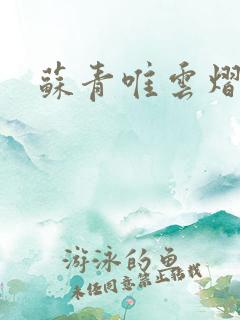 蘇青唯雲熠
游泳的魚
未经同意禁止转载